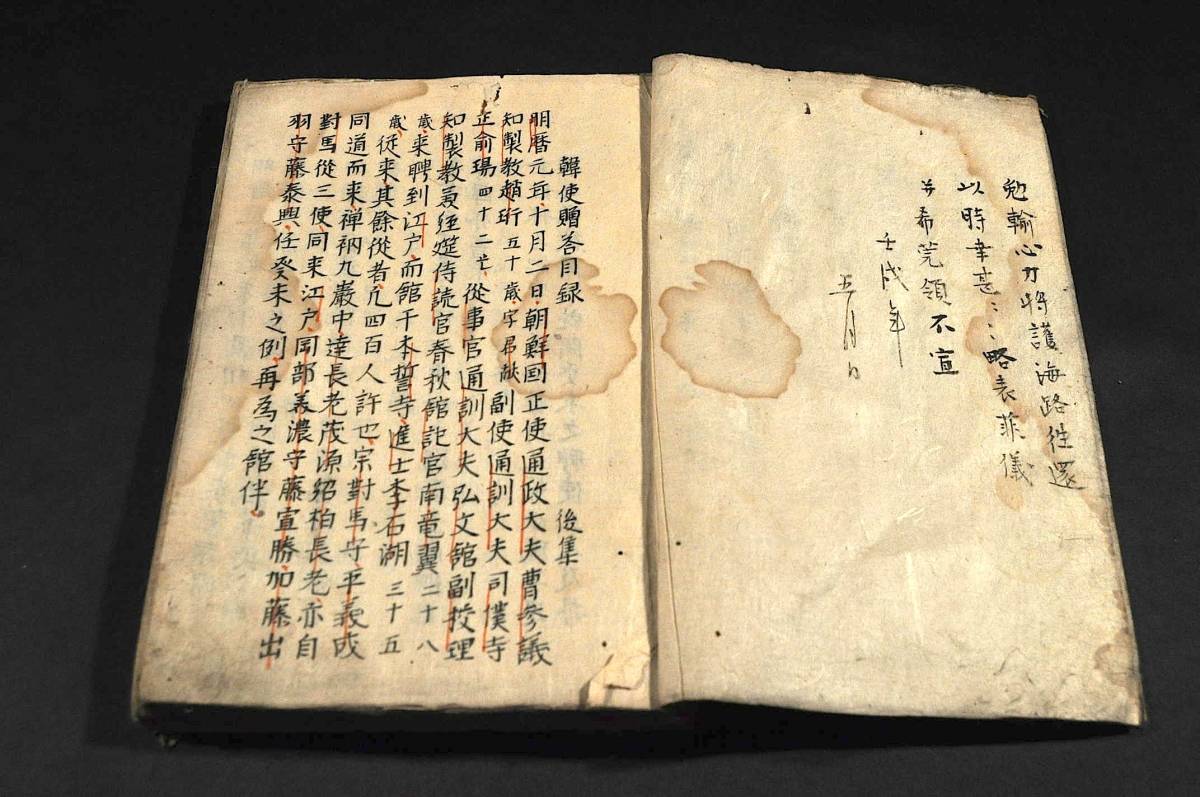 勉輸心力将護海路往還
以時幸甚〻〻略表菲儀
并希莞領不宣
壬戌年
五月日
韓使贈答目録 後集
明暦元年十月二日朝鮮国正使通政大夫曹参議
知製教趙珩五十歳字君献副使通訓大夫司僕寺
正兪瑒四十二才従事官通訓大夫弘文館副挍理
知製教兼経筵侍読官春秋館記官南竜翼二十八
歳来聘到江戸而館于本誓寺進士李石湖三十五
歳従来其餘従者凢四百人許也宗對馬守平義成
同道而来禅衲九巖中達長老茂源紹柏長老亦自
對馬従三使同来江戸岡部美濃守藤宣勝加藤出
羽守藤泰興任癸未之例再為之館伴